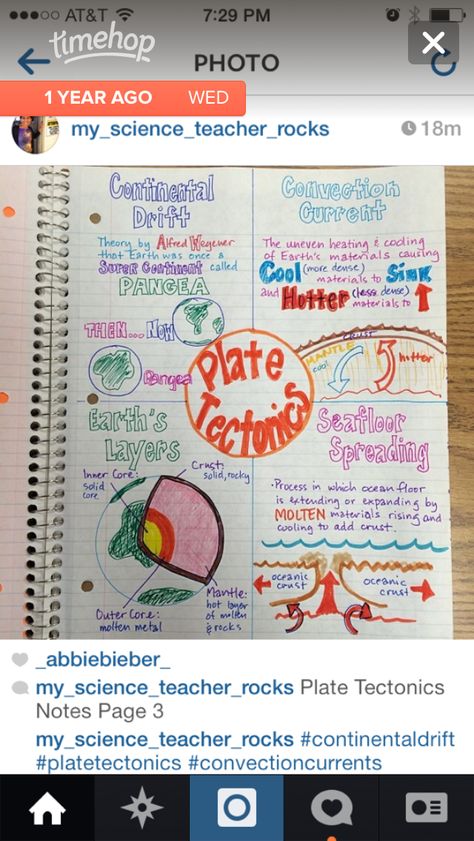 AT&T 7:29 PM
timehop
PHOTO
1 YEAR AGO WED
my_science_teacher_rocks 18m
Continental
Drift
Theory by Alfred Wegener
that Earth was once a
Super Continent called
PANGEA
THEN... NOW
Pangea
Convection
Current
The uneven heating & cooling
of Earth's materials causing
Cool (more dense) materials to Sink
and Hotter (less dense) materials to
CRUST
MANTLE
cool
hotter
Plate
Tectonics
Earth's
Layers
Inner Core:
solid
core
Crust:
solid, rocky
Outer Core:
molten metal
Mantle:
hot layer
of molten
& rocks
Seafloor
Spreading
• Process in which ocean floor
is extending or expanding by
MOLTEN materials rising and
cooling to add crust.
oceanic
crust
oceanic
crust
_abbiebieber_
my_science_teacher_rocks Plate Tectonics
Notes Page 3
my_science_teacher_rocks #continentaldrift
#platetectonics #convectioncurrents